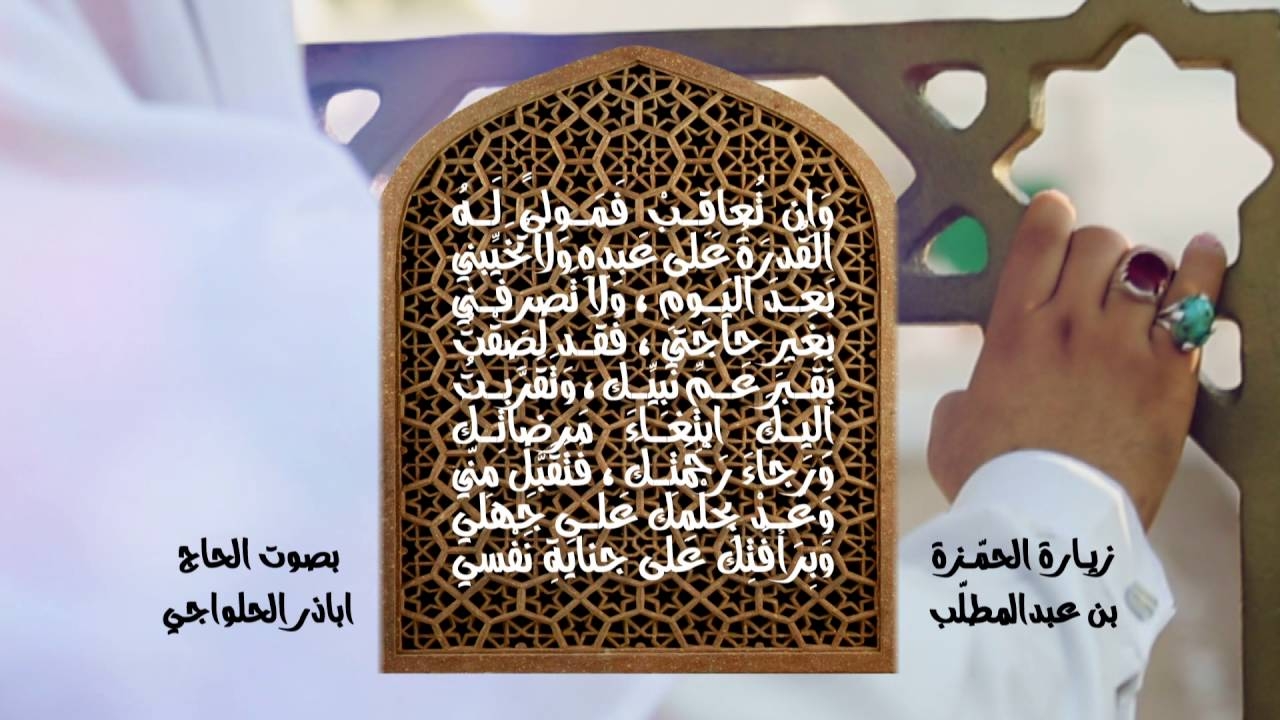 وَإِن تُعاقِبْ فَمَولىً لَهُ
القُدرَةُ عَلى عَبدِهِ وَلاتُخَيِّبني
بَعدَ اليَومِ ، وَلا تَصرِفني
بِغَيرِ حاجَتي ، فَقَد لَصَقْتُ
بِقَبرِ عَمِّ نَبِيِّكَ ، وَتَقَرَّبتُ
اليكَ ابتِغاءَ مَرضاتِكَ
وَرَجاءَ رَحْمَتِكَ ، فَتَقَبَّل مِنّي
وَعُدْ بِحِلمِكَ عَلى جَهلي
وَبِرَأفَتِكَ عَلى جِنايَةِ نَفْسي
زيارة الحمّزة
بن عبدالمطلّب
بصوت الحاج
اباذر الحلواجي